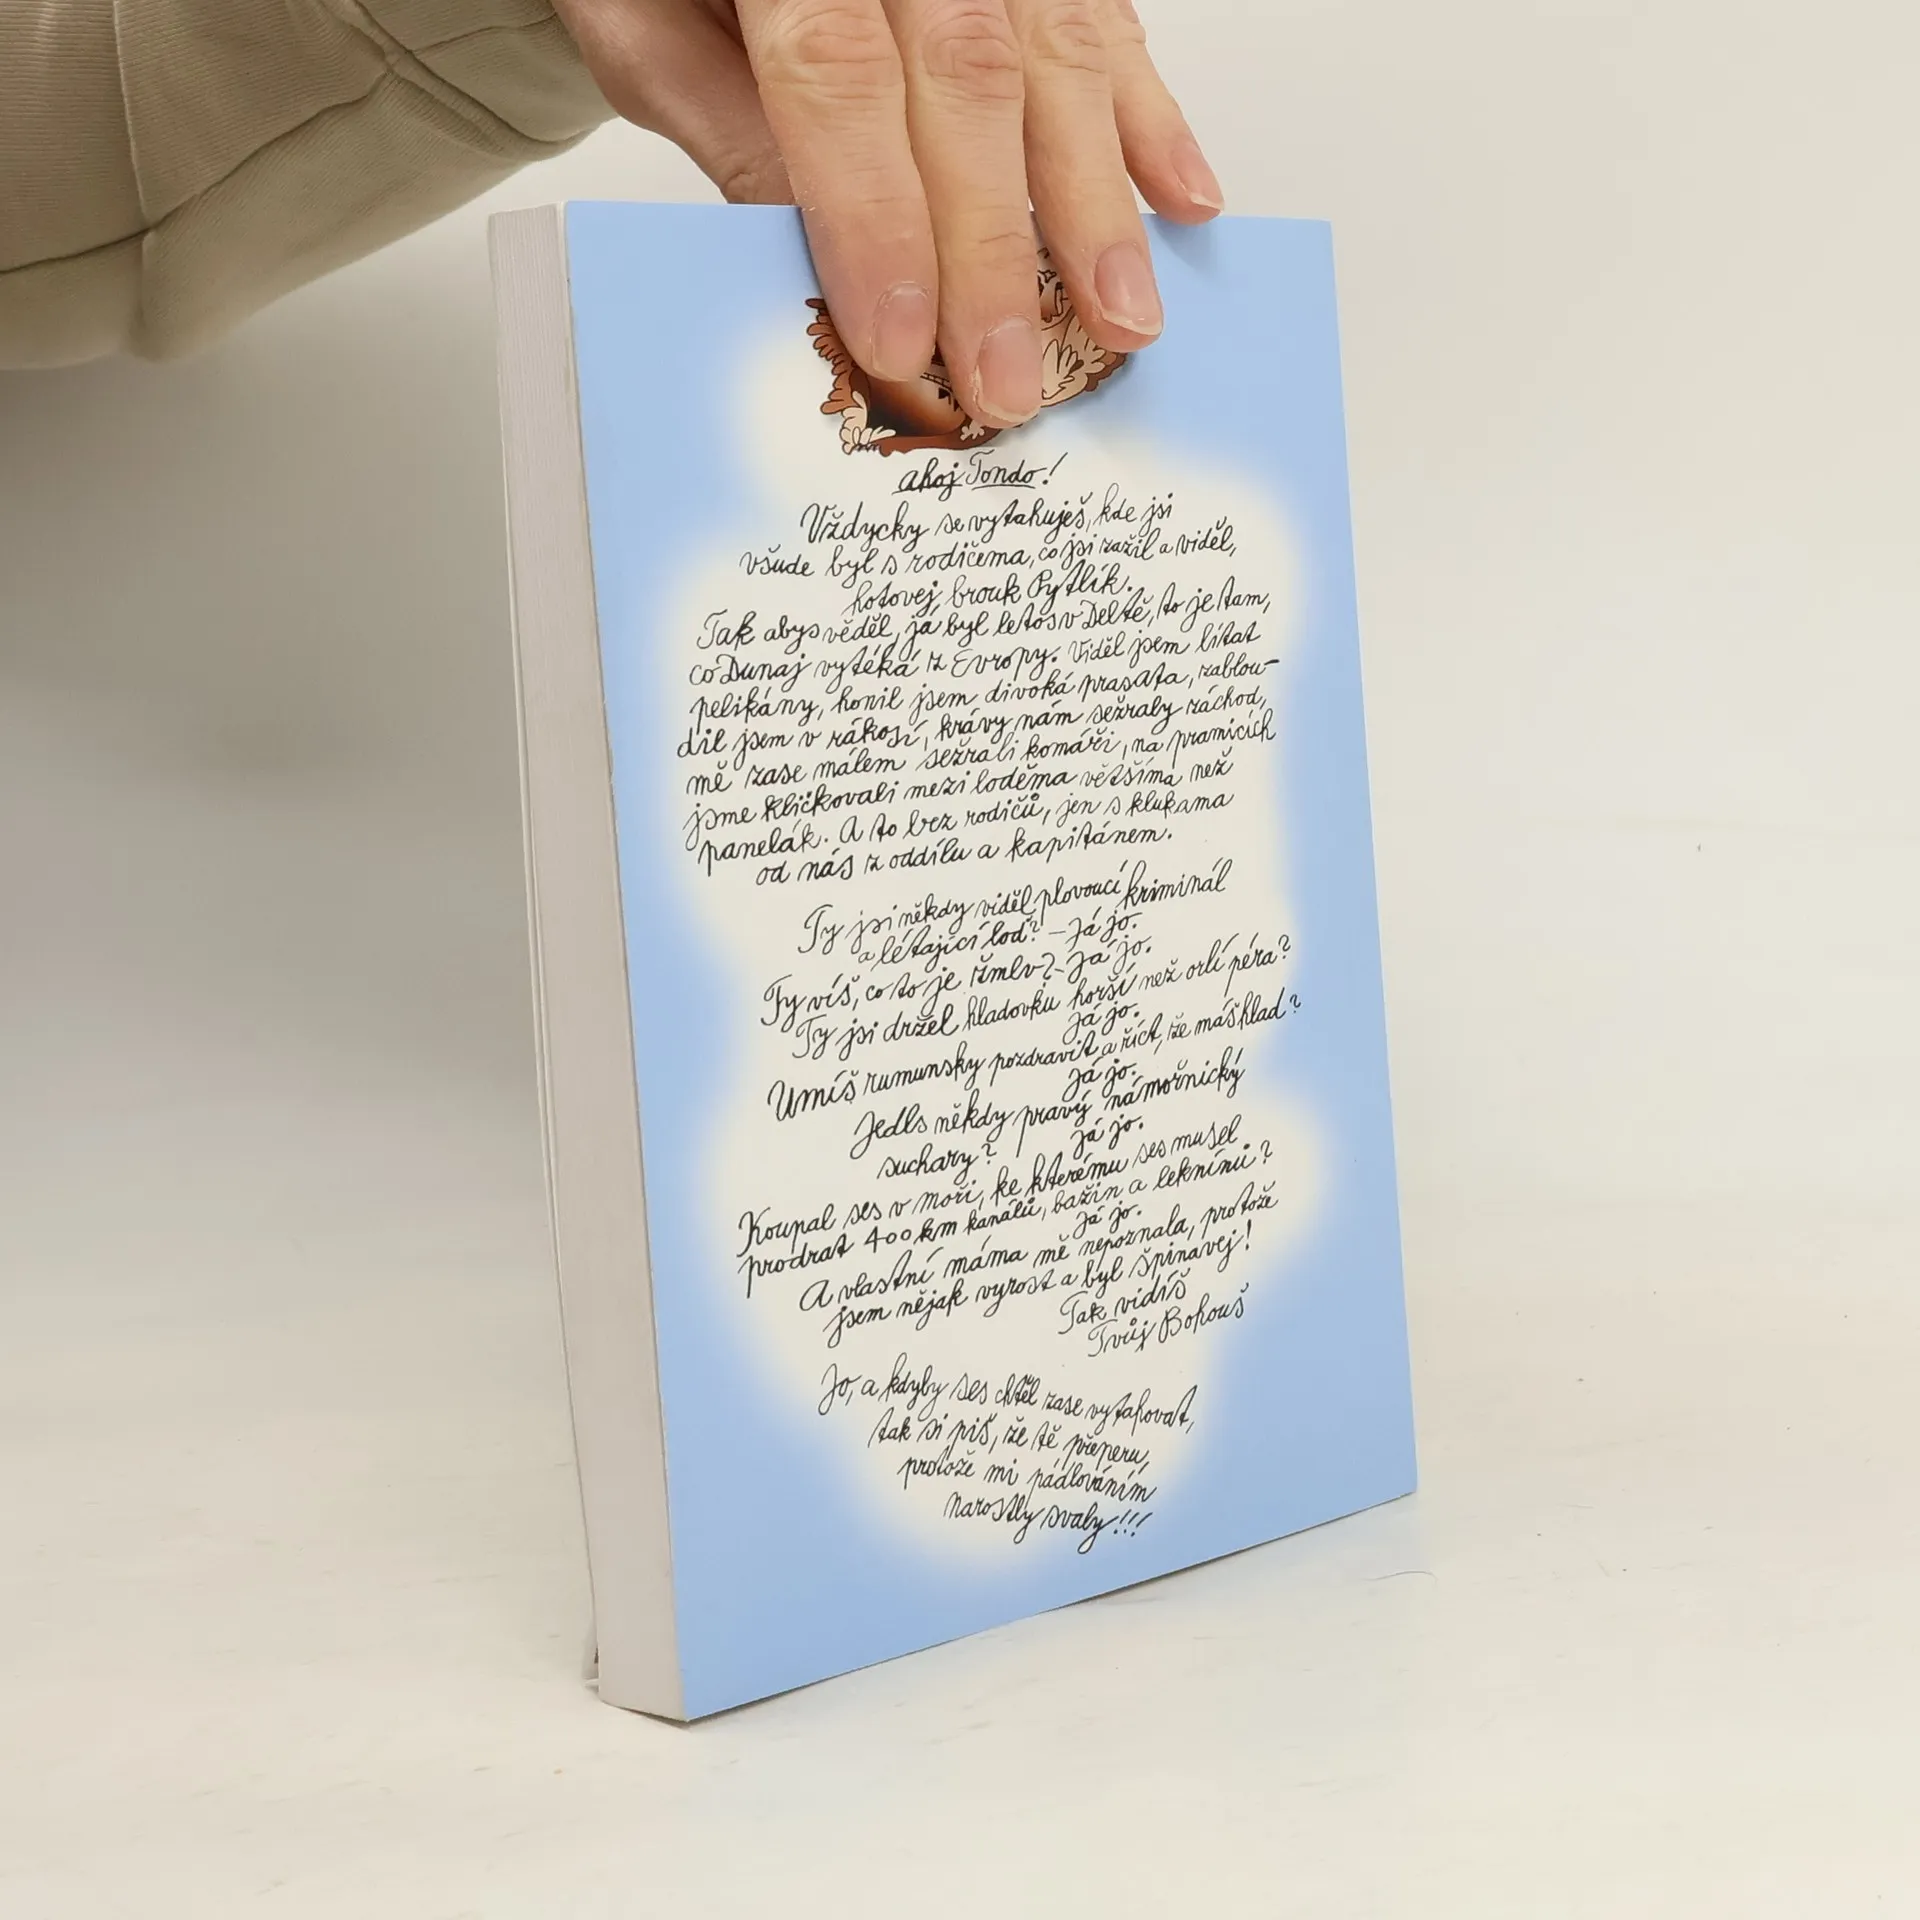 ahoj Tondo!
Vždycky se vytahuješ, kde jsi
všude byl s rodičema, co jsi zažil a viděl,
hotovej brouk Pytlík.
Tak abys věděl, já byl letos v Deltě, to je tam,
co Dunaj vytéká z Evropy. Viděl jsem lítat
pelikány, honil jsem divoká prasata, zablou-
dil jsem v rákosí, krávy nám sežraly záchod,
mě zase málem sežrali komáři, na pramicích
jsme kličkovali mezi loděma většíma než
panelák. A to bez rodičů, jen s klukama
od nás z oddílu a kapitánem.
Ty jsi někdy viděl plovoucí kriminál
a létající loď? – Já jo.
Ty víš, co to je žmlv? – Já jo.
Ty jsi držel hladovku horší než orlí péra?
Já jo.
Umíš rumunsky pozdravit a říct, že máš hlad?
Já jo.
Jedls někdy pravý námořnický
suchary? Já jo.
Koupal ses v moři, ke kterému ses musel
prodrat 400 km kanálů, bažin a leknínů?
Já jo.
A vlastní máma mě nepoznala, protože
jsem nějak vyrost a byl špinavej!
Tak vidíš
Tvůj Bohouš
Jo, a kdyby ses chtěl zase vytahovat,
tak si piš, že tě přeperu,
protože mi pádlováním
narostly svaly!!!